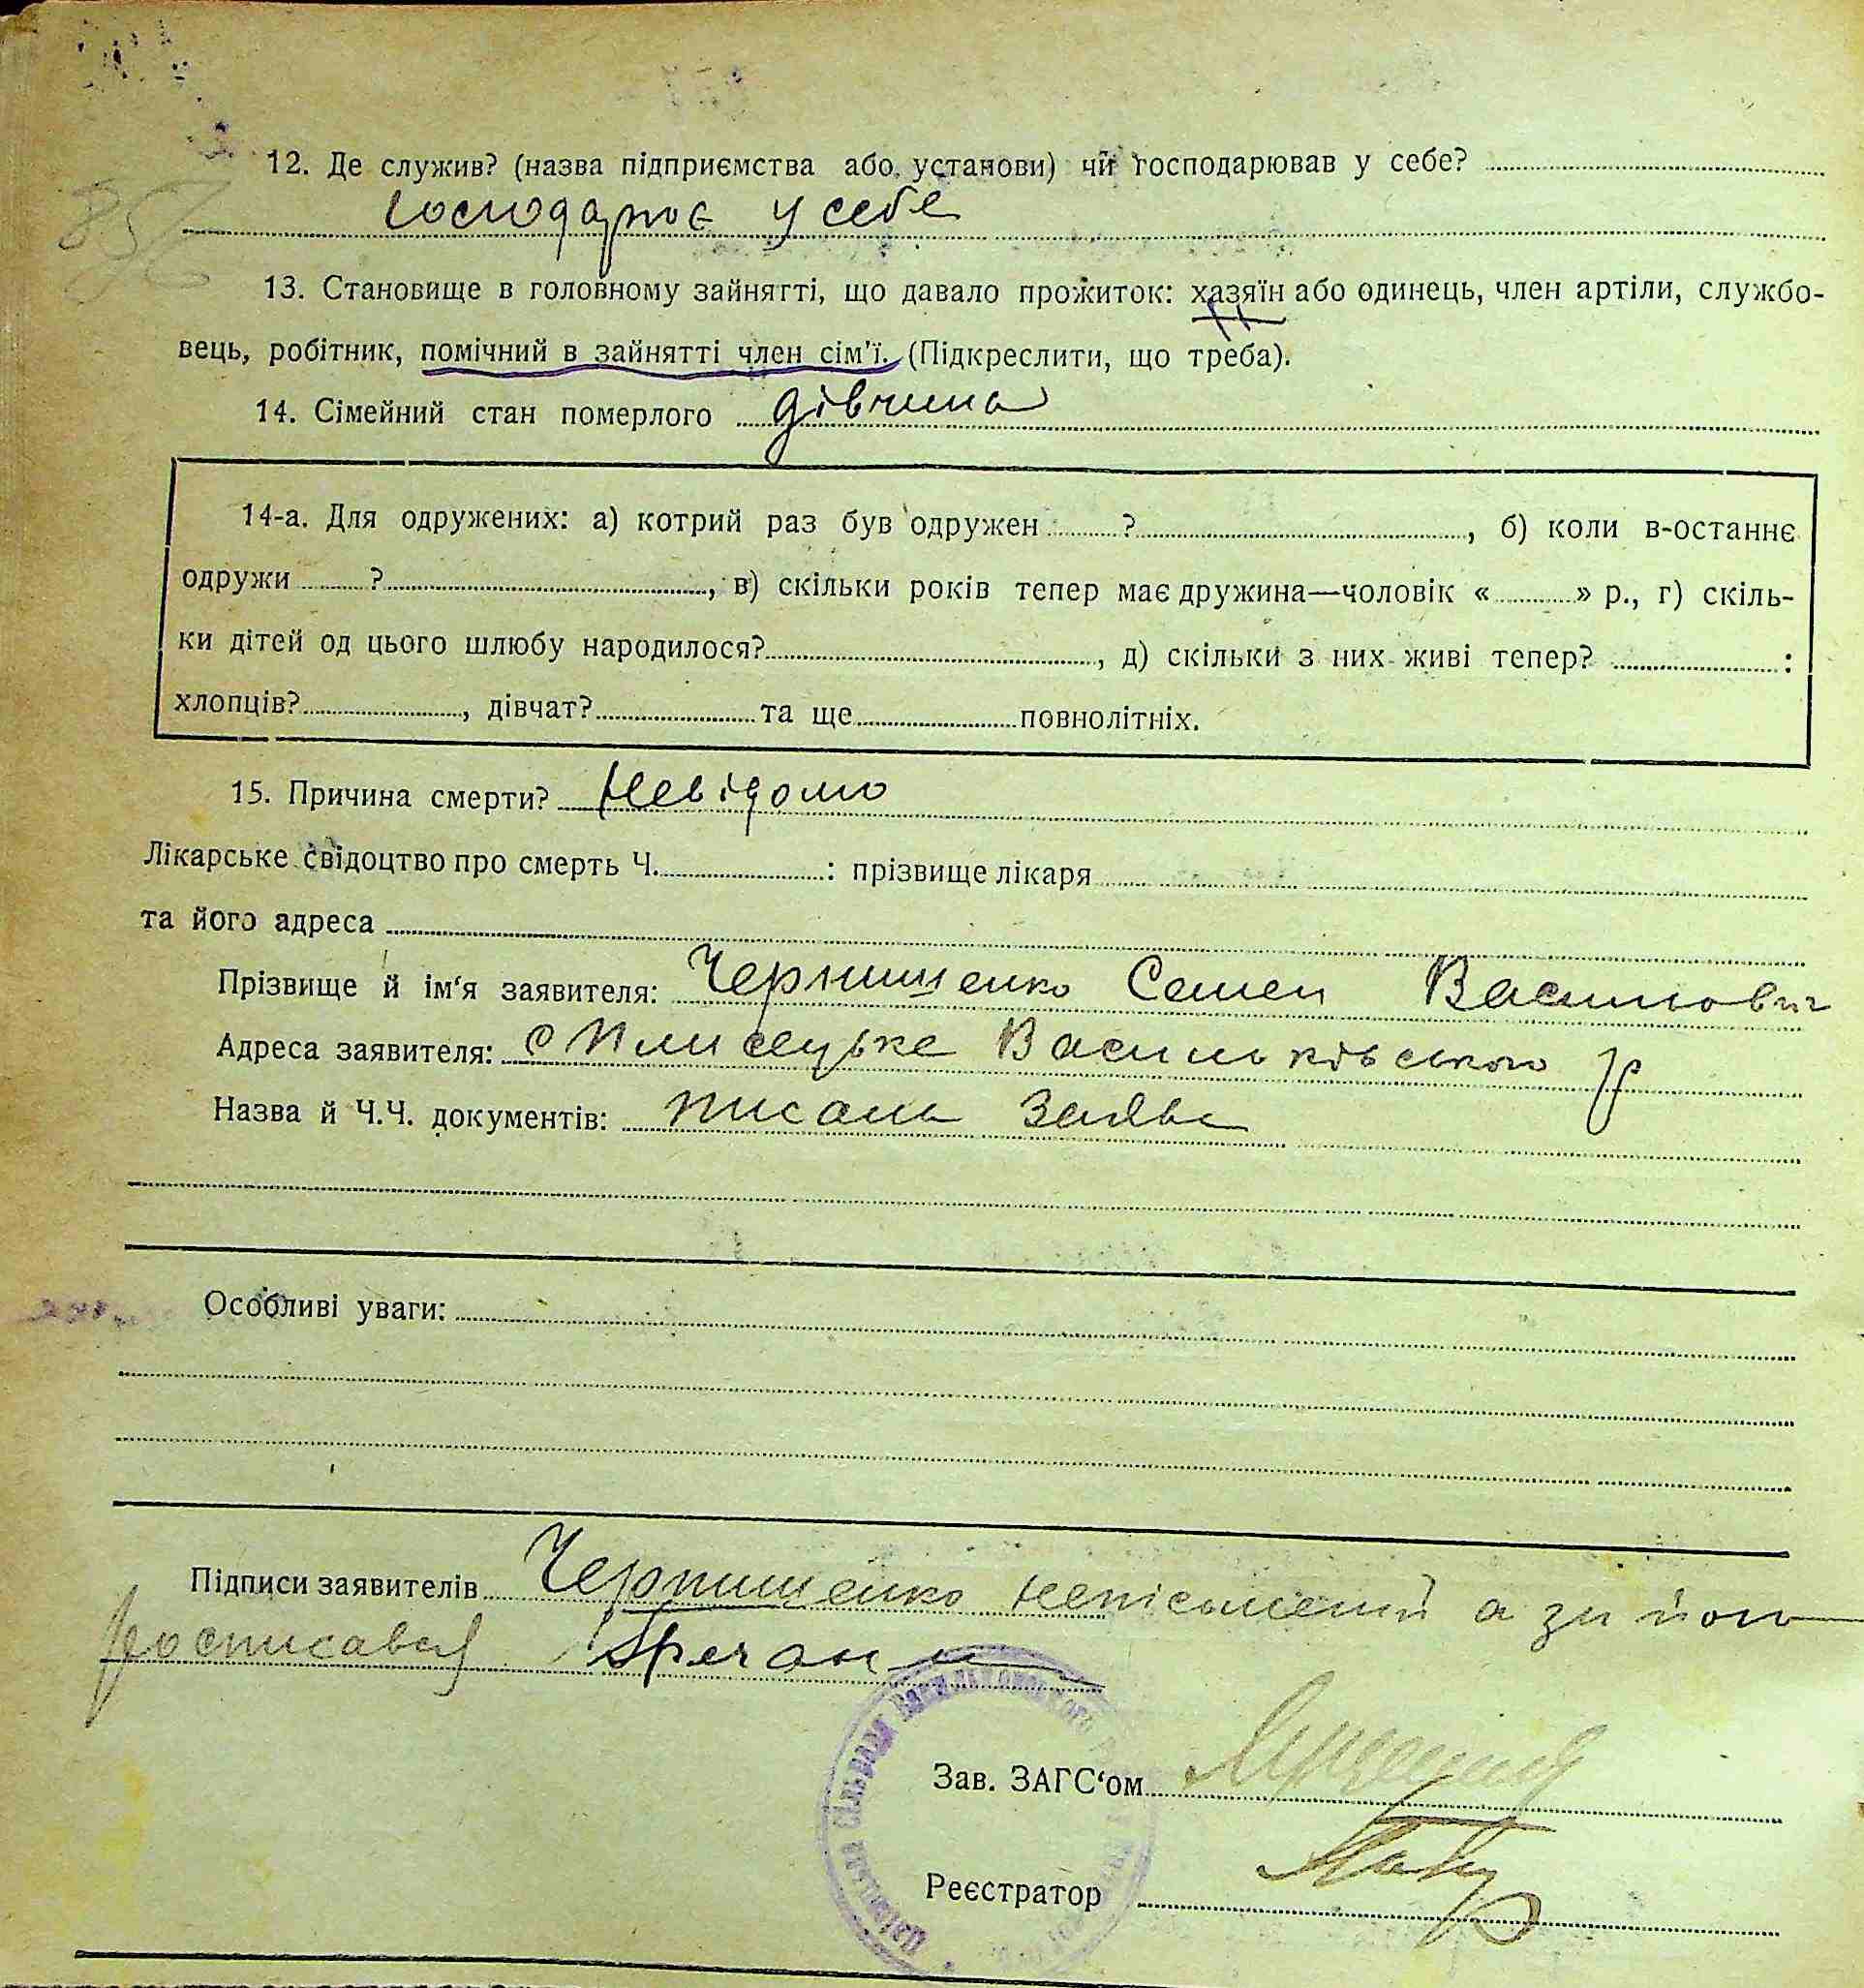 12. Де служив? (назва підприємства або установи) чи господарював у себе?
господарює у себе
13. Становище в головному зайнятті, що давало прожиток: хазяїн або одинець, член артіли, службо-
вець, робітник, помічний в зайнятті член сім'ї. (Підкреслити, що треба).
14. Сімейний стан померлого дівчина
14-а. Для одружених: а) котрий раз був одружен ?, б) коли в-останнє
одружи ?, в) скільки років тепер має дружина—чоловік « » р., г) скіль-
ки дітей од цього шлюбу народилося?, д) скільки з них живі тепер? :
хлопців?, дівчат? та ще повнолітніх.
15. Причина смерти? Невідомо
Лікарське свідоцтво про смерть Ч. : прізвище лікаря
та його адреса
Прізвище й ім'я заявителя: Чернишенко Семен Васильович
Адреса заявителя: с Плисецьке Васильківського р
Назва й Ч.Ч. документів: писана заява
Особливі уваги:
Підписи заявителів Чернишенко неписьмений а за його
росписався
Зав. ЗАГС'ом
Реєстратор